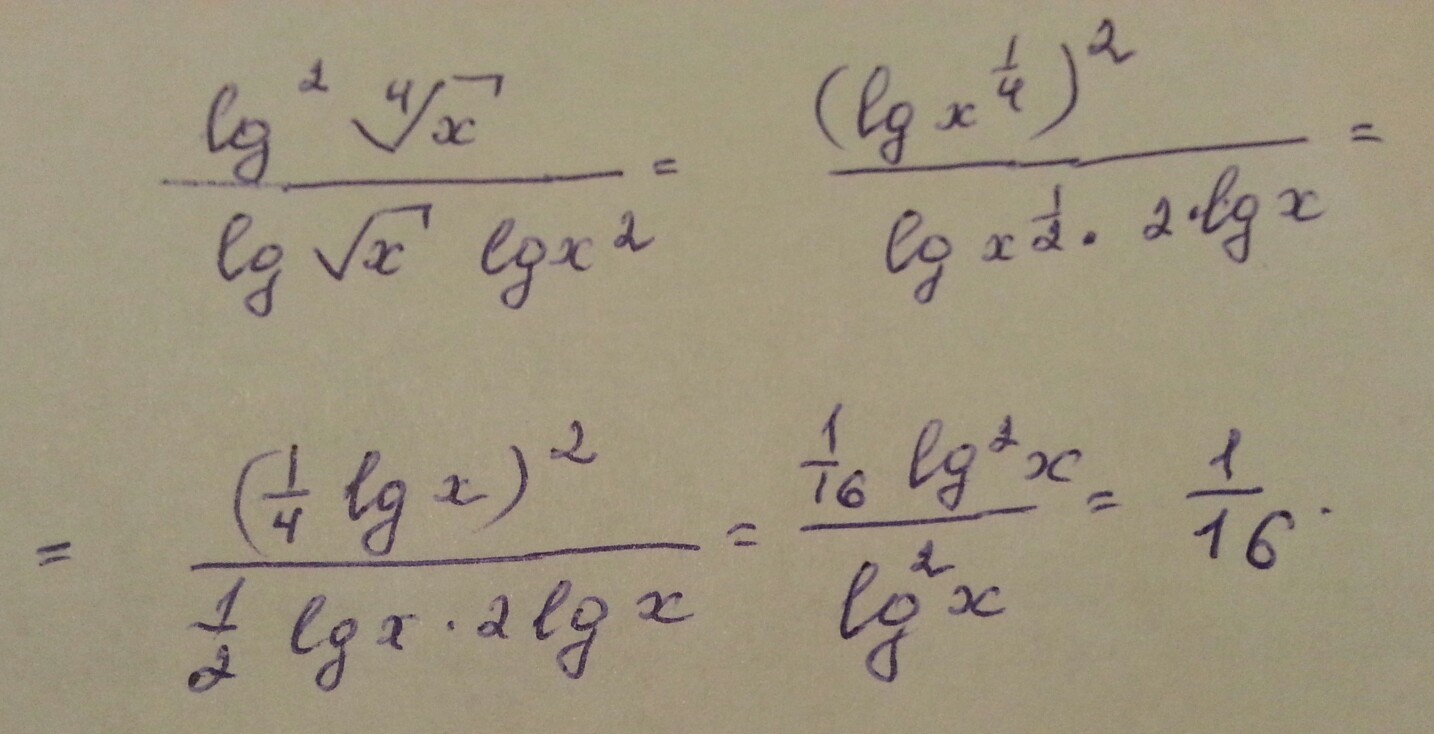 \frac{lg^2 \sqrt[4]{x}}{lg \sqrt{x} \; lg x^2} = \frac{(lg x^{\frac{1}{4}})^2}{lg x^{\frac{1}{2}} \cdot 2 \cdot lg x} =
= \frac{(\frac{1}{4} lg x)^2}{\frac{1}{2} lg x \cdot 2 lg x} = \frac{\frac{1}{16} lg^2 x}{lg^2 x} = \frac{1}{16}.